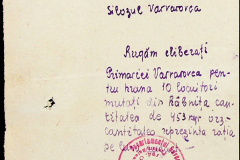 Silozul Varvarovca
Rugăm eliberați
Primăriei Varvarovca pen-
tru hrana 10 locuitori
mutați din Râbnița can-
titatea de 453 kgr orz-
cantitatea reprezintă rația
pe